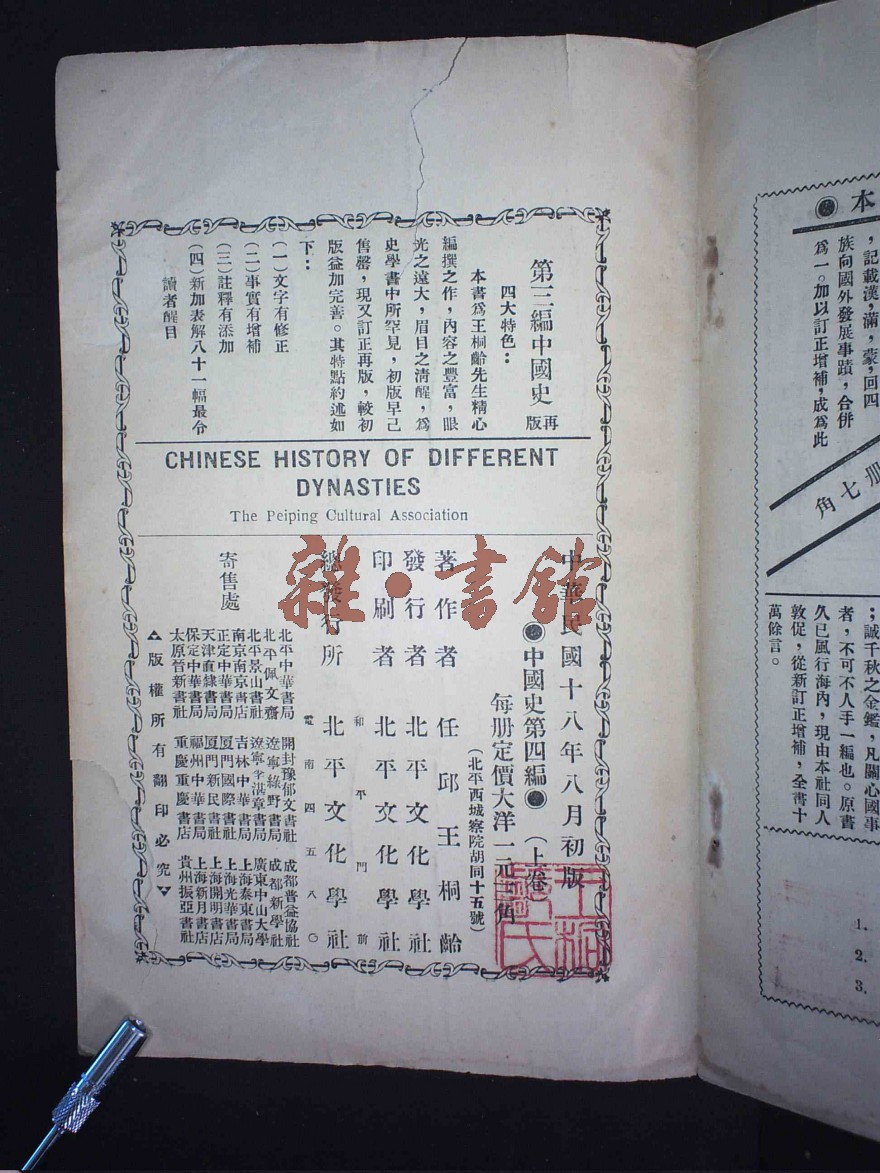 第三編中國史 再版
四大特色：
本書爲王桐齡先生精心
編撰之作，內容之豐富，眼
光之遠大，眉目之清醒，爲
史學書中所罕見，初版早已
售罄，現又訂正再版，較初
版益加完善。其特點約述如
下：
(一)文字有修正
(二)事實有增補
(三)註釋有添加
(四)新加表解八十一幅最令
讀者醒目
CHINESE HISTORY OF DIFFERENT
DYNASTIES
The Peiping Cultural Association
中華民國十八年八月初版
●中國史第四編●（上卷）
每册定價大洋一元 角
（北平西城察院胡同十五號）
著作者 任邱王桐齡
發行者 北平文化學社
印刷者 北平文化學社
和平門前
總發行所 北平文化學社
電南四五八〇
寄售處
北平中華書局 開封豫郁文書社 成都普益協社
北平佩文齋 遼寧綠野書局 成都新學社
北平景山書社 遼寧 淇章書局 廣東中山大學
南京南京書店 吉林中華書局 上海泰東書局
正定中華書局 厦門國際書社 上海光華書局
天津直隸書局 厦門新民書社 上海開明書店
保定中華書局 福州中華書局 上海新月書店
太原晉新書社 重慶重慶書店 貴州振亞書社
▲版權所有翻印必究▼
雜·書館
本●
，記載漢，滿，蒙，回四
族向國外發展事蹟，合併
爲一。加以訂正增補，成爲此
册七角
；誠千秋之金鑑，凡關心國事
者，不可不人手一編也。原書
久已風行海內，現由本社同人
敦促，從新訂正增補，全書十
萬餘言。
1.
2.
3.